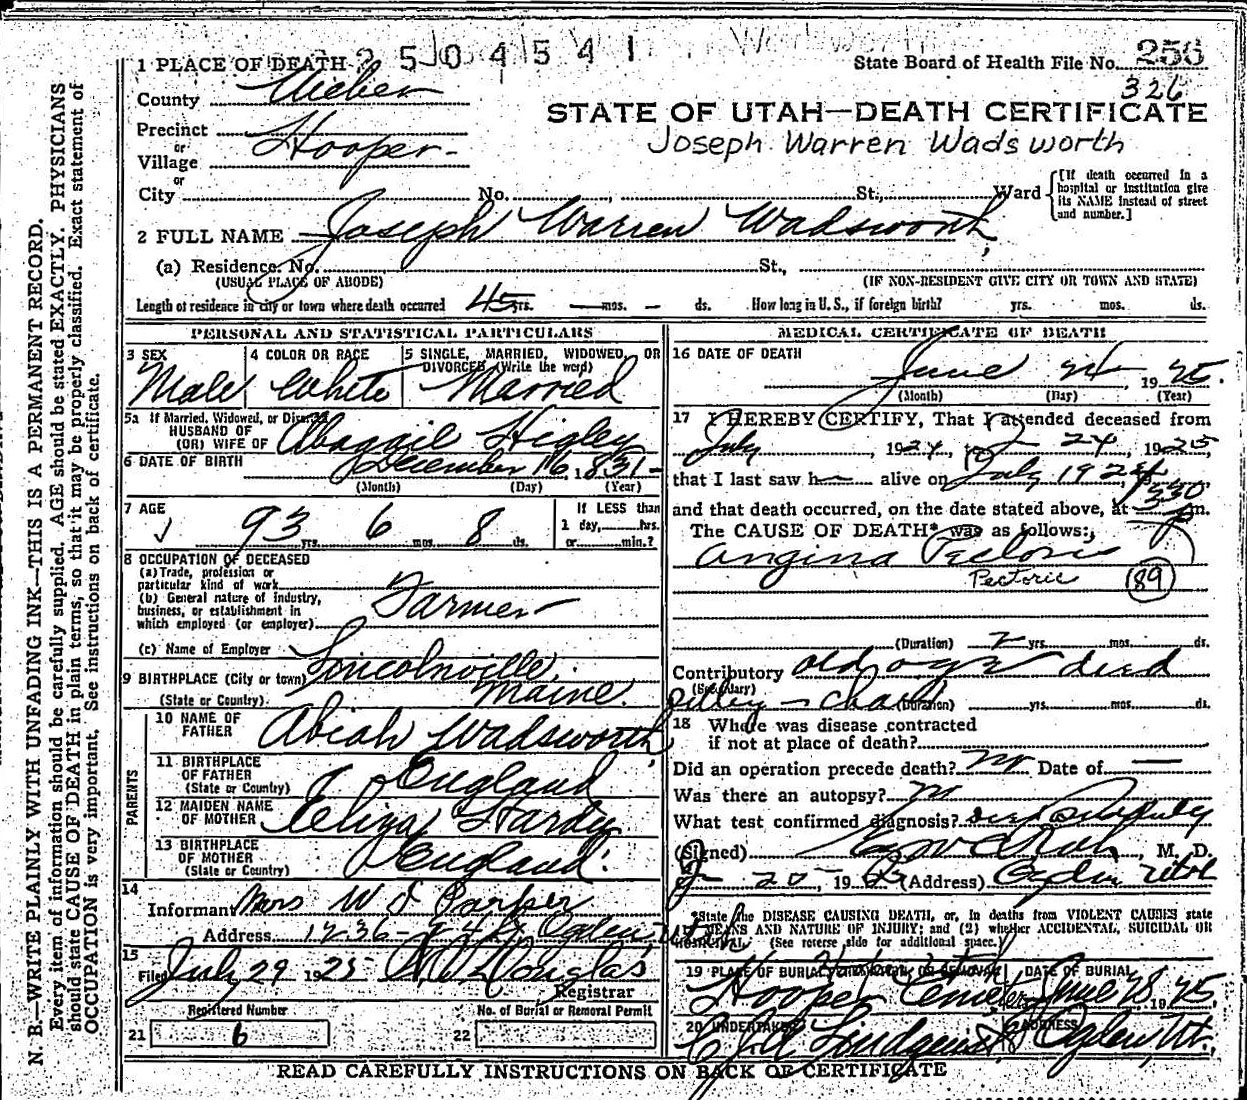 2504541
1 PLACE OF DEATH
State Board of Health File No. 256
326
County Weber
STATE OF UTAH—DEATH CERTIFICATE
Precinct
or
Village Hooper
Joseph Warren Wadsworth
or
City No. , St., Ward
[If death occurred in a hospital or institution give its NAME instead of street and number.]
2 FULL NAME Joseph Warren Wadsworth,
(a) Residence. No. St.,
(USUAL PLACE OF ABODE) (IF NON-RESIDENT GIVE CITY OR TOWN AND STATE)
Length of residence in city or town where death occurred 45 yrs. — mos. - ds. How long in U. S., if foreign birth? yrs. mos. ds.
PERSONAL AND STATISTICAL PARTICULARS
3 SEX Male
4 COLOR OR RACE White
5 SINGLE, MARRIED, WIDOWED, OR DIVORCED (Write the word) Married
5a If Married, Widowed, or Divorced
HUSBAND OF
(OR) WIFE OF Abagail Higley
6 DATE OF BIRTH December 16, 1831-
(Month) (Day) (Year)
7 AGE 93 yrs. 6 mos. 8 ds.
If LESS than
1 day, hrs.
or min.?
8 OCCUPATION OF DECEASED
(a) Trade, profession or
particular kind of work
(b) General nature of industry,
business, or establishment in
which employed (or employer) Farmer
(c) Name of Employer
9 BIRTHPLACE (City or town) Lincolnville,
(State or Country). Maine.
PARENTS
10 NAME OF
FATHER Abiah Wadsworth
11 BIRTHPLACE
OF FATHER
(State or Country) England
12 MAIDEN NAME
OF MOTHER Eliza Hardy
13 BIRTHPLACE
OF MOTHER
(State or Country) England.
14
Informant Mrs W Parker
Address 1236 Ogden Utah
15
Filed July 29 1925 Douglas
Registrar
Registered Number
21 6
No. of Burial or Removal Permit
22
MEDICAL CERTIFICATE OF DEATH
16 DATE OF DEATH
June 24, 1925.
(Month) (Day) (Year)
17 I HEREBY CERTIFY, That I attended deceased from
July, 1924, 24, 1925,
that I last saw h alive on July 1924,
and that death occurred, on the date stated above, at 330 m.
The CAUSE OF DEATH* was as follows:
Angina Pectoris
Pectoric 89
(Duration) yrs. mos. ds.
Contributory old age died
(Secondary)
(Duration) yrs. mos. ds.
18 Where was disease contracted
if not at place of death?
Did an operation precede death? no Date of —
Was there an autopsy? no
What test confirmed diagnosis?
(Signed) , M. D.
19 (Address) Ogden Utah
*State the DISEASE CAUSING DEATH, or, in deaths from VIOLENT CAUSES state
MEANS AND NATURE OF INJURY; and (2) whether ACCIDENTAL, SUICIDAL OR
HOMICIDAL. (See reverse side for additional space.)
19 PLACE OF BURIAL, CREMATION OR REMOVAL
Hooper Cemetery
DATE OF BURIAL
June 28, 1925.
20 UNDERTAKER
Lindquist
ADDRESS
Ogden, Ut.
READ CAREFULLY INSTRUCTIONS ON BACK OF CERTIFICATE
N. B.—WRITE PLAINLY WITH UNFADING INK—THIS IS A PERMANENT RECORD.
Every item of information should be carefully supplied. AGE should be stated EXACTLY. PHYSICIANS
should state CAUSE OF DEATH in plain terms, so that it may be properly classified. Exact statement of
OCCUPATION is very important. See instructions on back of certificate.